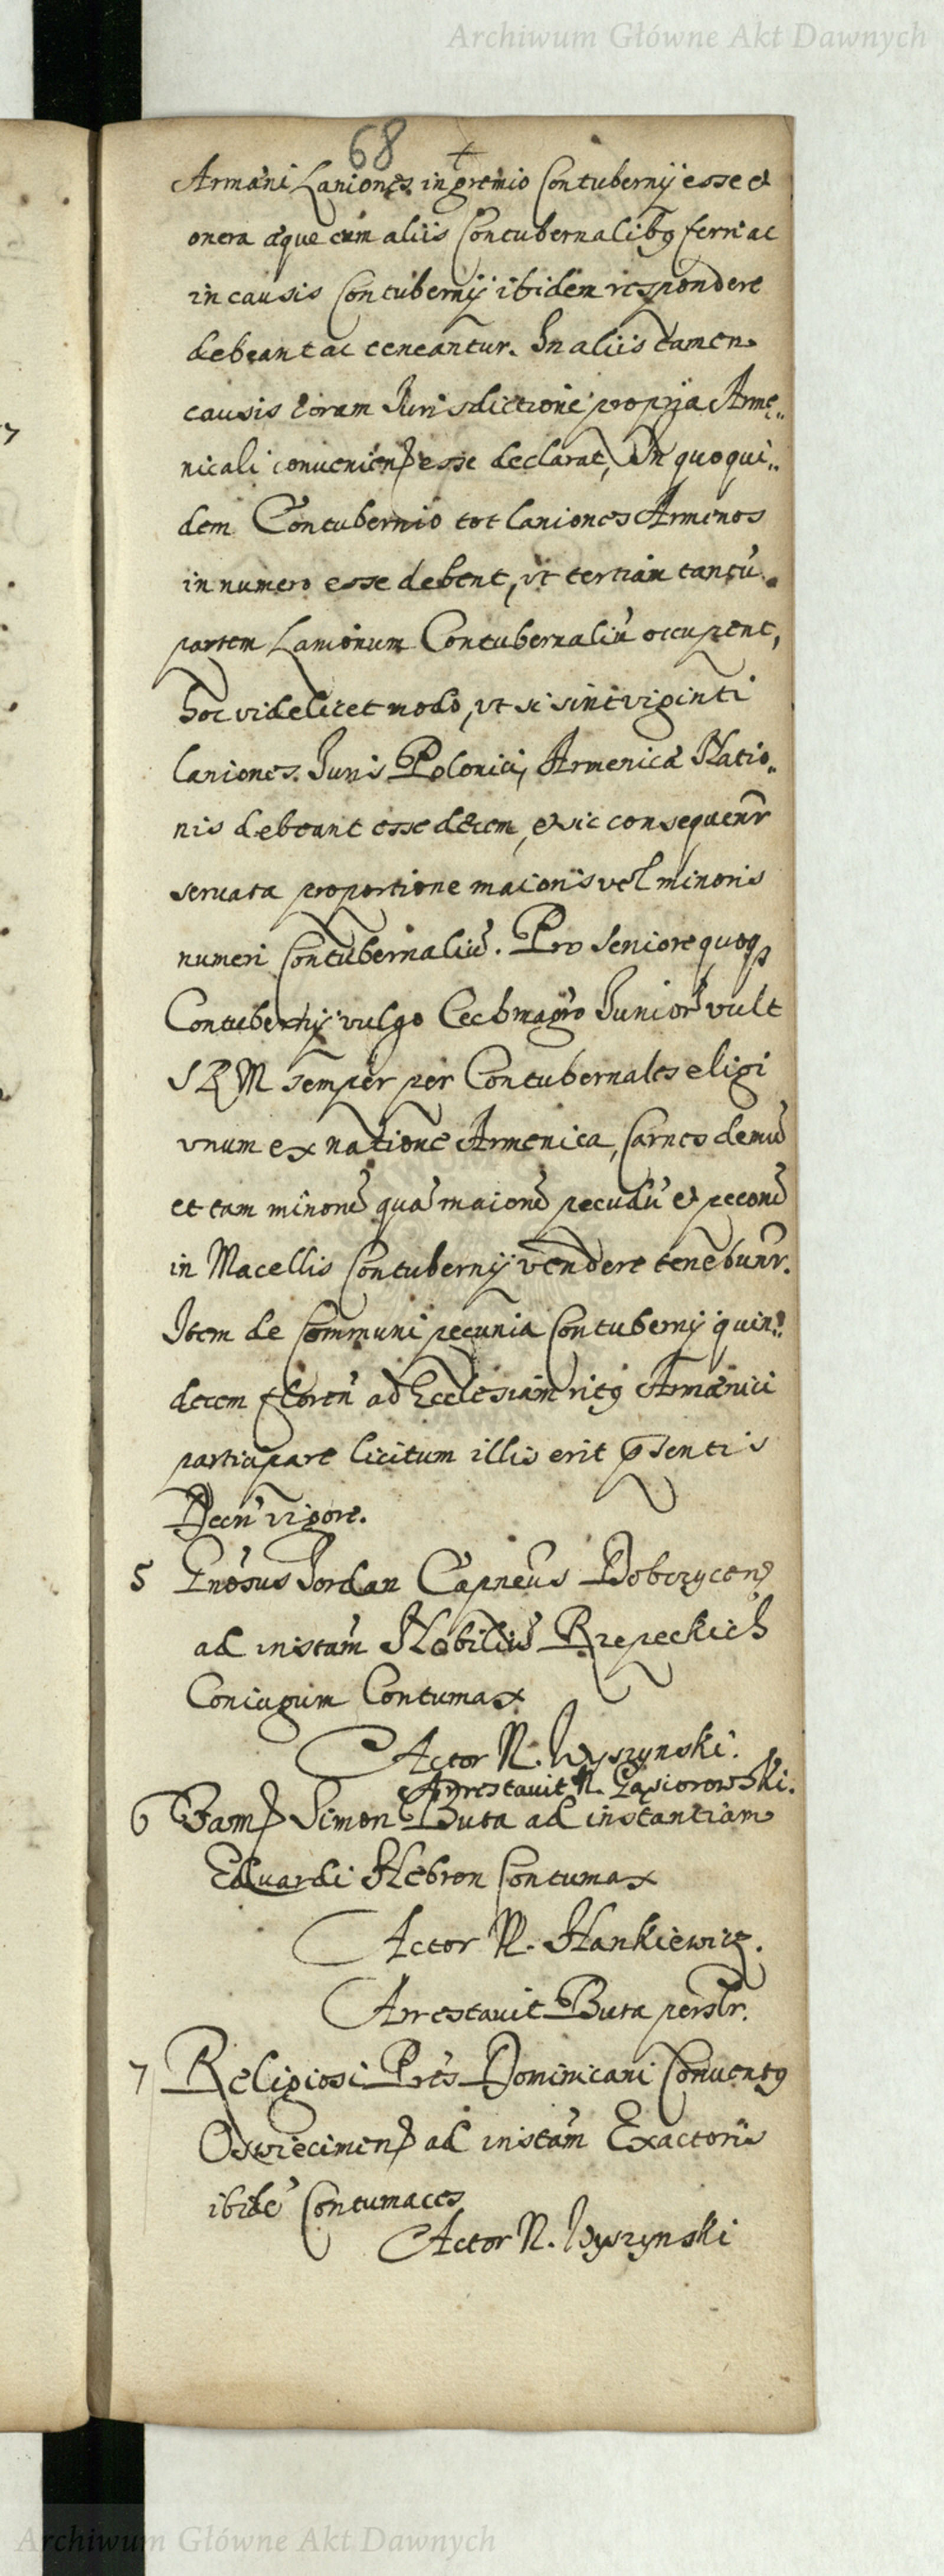 Archiwum Główne Akt Dawnych
68
Armæni Laniones in gremio Contubernÿ esse et
onera æque cum aliis Contubernalibq ferri ac
in causis Contubernÿ ibidem respondere
debeant ac teneantur. In aliis tamen
causis coram Jurisdictione propria Arme„
nicali convenien esse declarat, In quo qui„
dem Contubernio tot laniones Armenos
in numero esse debent, ut tertiam tantũ
partem Lanionum Contubernaliũ occupent,
hoc videlicet modo, ut si sint viginti
laniones Juris Polonici, Armenicæ Natio„
nis debeant esse decem, et sic consequenr
servata proportione maioris vel minoris
numeri Contubernaliũ. Pro Seniore quoq
Contubernÿ vulgo Cechmagro Juniori vult
SRM semper per Contubernales eligi
unum ex natione Armenica, Carnes demũ
et tam minorũ quã maiorũ pecudũ et pecorũ
in Macellis Contubernÿ vendere tenebunr.
Item de Communi pecunia Contubernÿ quin„
decem florenũ ad Ecclesiam ritq Armænici
participare licitum illis erit psentis
Decri vigore.
5 Gnosus Jordan Capneus Dobczycen
ad instam Nobiliũ Rzepeckich
Coniugum Contumax
Actor N. Wyszynski.
Arrestavit N. Gąsiorowski.
6 Fam Simon Buta ad instantiam
Eduardi Hebron Contumax
Actor N. Hankiewicz.
Arrestavit Buta persr.
7 Religiosi Pres Dominicani Conventq
Oswiecimen ad instam Exactoris
ibidẽ Contumaces
Actor N. Wyszynski
Archiwum Główne Akt Dawnych